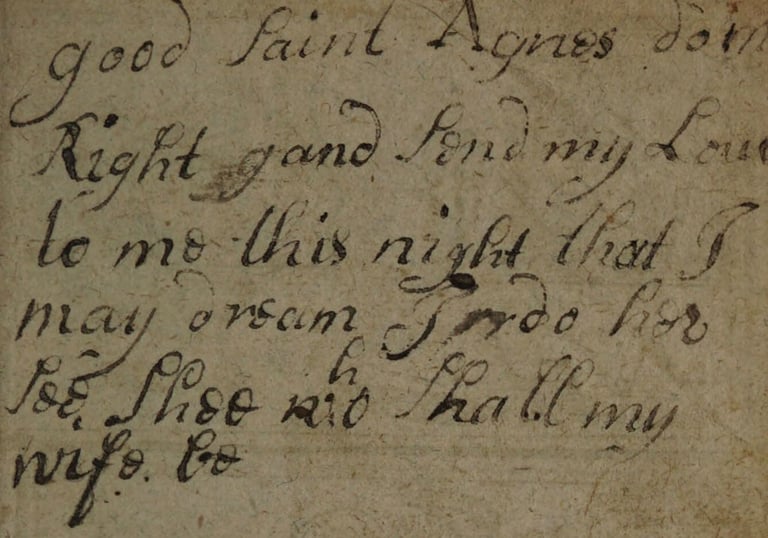 good saint Agnes do m
Right gand send my Lou
to me this night that I
may dream I do her
see, shee who shall my
wife. be